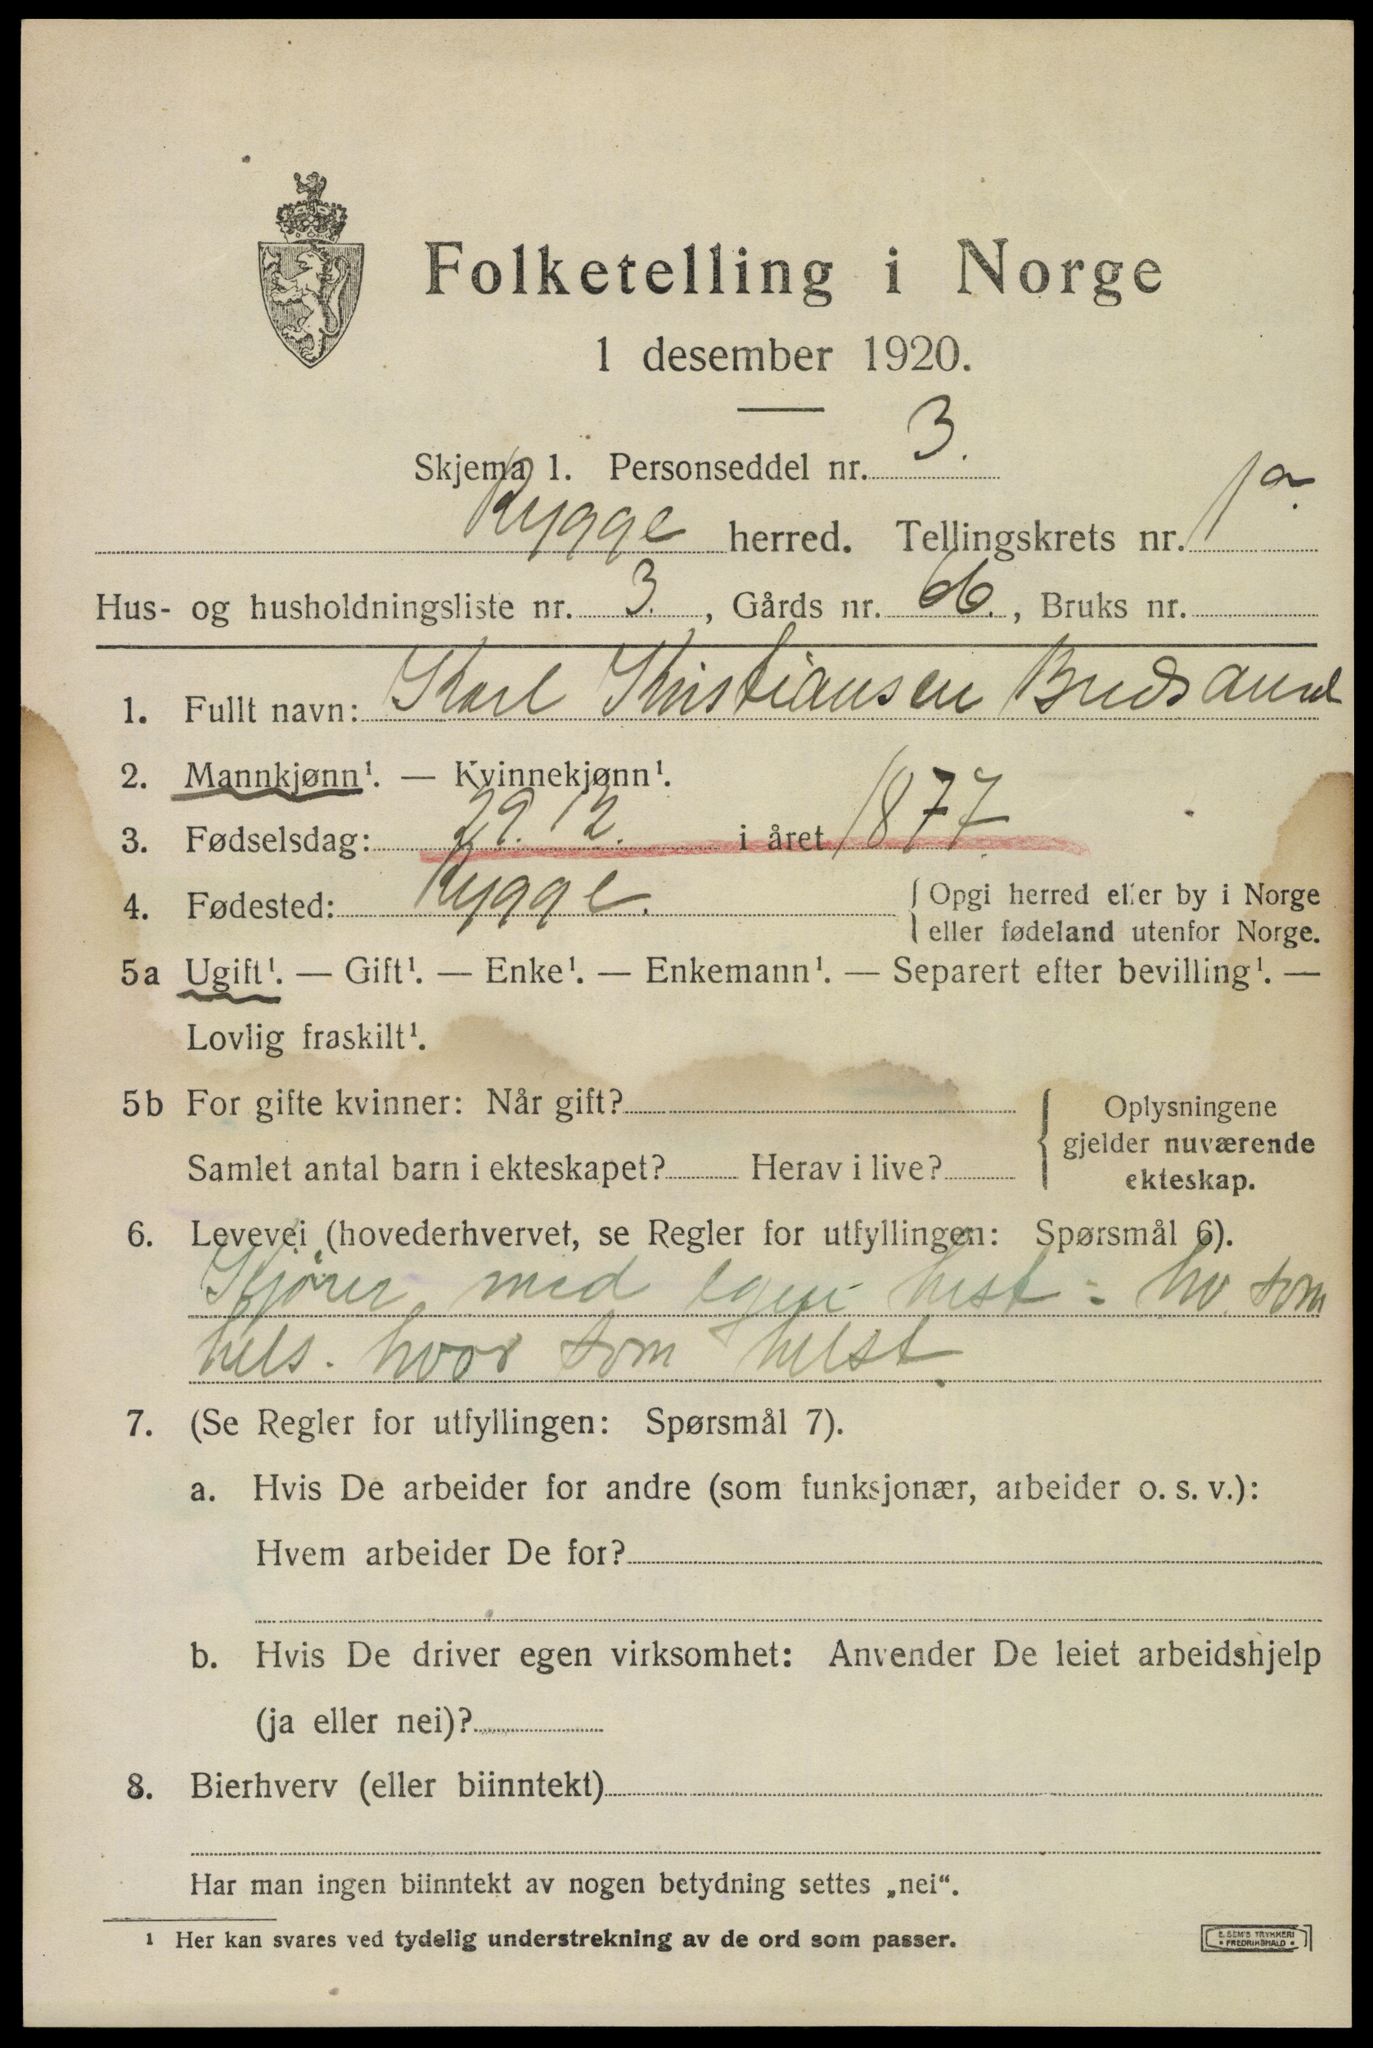 Folketelling i Norge
1 desember 1920.
Skjema 1. Personseddel nr. 3.
Rygge herred. Tellingskrets nr. 1a.
Hus- og husholdningsliste nr. 3., Gårds nr. 66., Bruks nr.
1. Fullt navn: Karl Kristiansen Bredsand
2. Mannkjønn¹. — Kvinnekjønn¹.
3. Fødselsdag: 29. 12. i året 1877.
4. Fødested: Rygge. { Opgi herred eller by i Norge
eller fødeland utenfor Norge.
5a Ugift¹. — Gift¹. — Enke¹. — Enkemann¹. — Separert efter bevilling¹. —
Lovlig fraskilt¹.
5b For gifte kvinner: Når gift? { Oplysningene
gjelder nuværende
Samlet antal barn i ekteskapet? Herav i live?
ekteskap.
6. Levevei (hovederhvervet, se Regler for utfyllingen: Spørsmål 6).
Kjører med egen hest - hv. som
hels. hvor som helst.
7. (Se Regler for utfyllingen: Spørsmål 7).
a. Hvis De arbeider for andre (som funksjonær, arbeider o. s. v.):
Hvem arbeider De for?
b. Hvis De driver egen virksomhet: Anvender De leiet arbeidshjelp
(ja eller nei)?
8. Bierhverv (eller biinntekt)
Har man ingen biinntekt av nogen betydning settes „nei“.
¹ Her kan svares ved tydelig understrekning av de ord som passer.
E. SEM'S TRYKKERI
• FREDRIKSHALD •